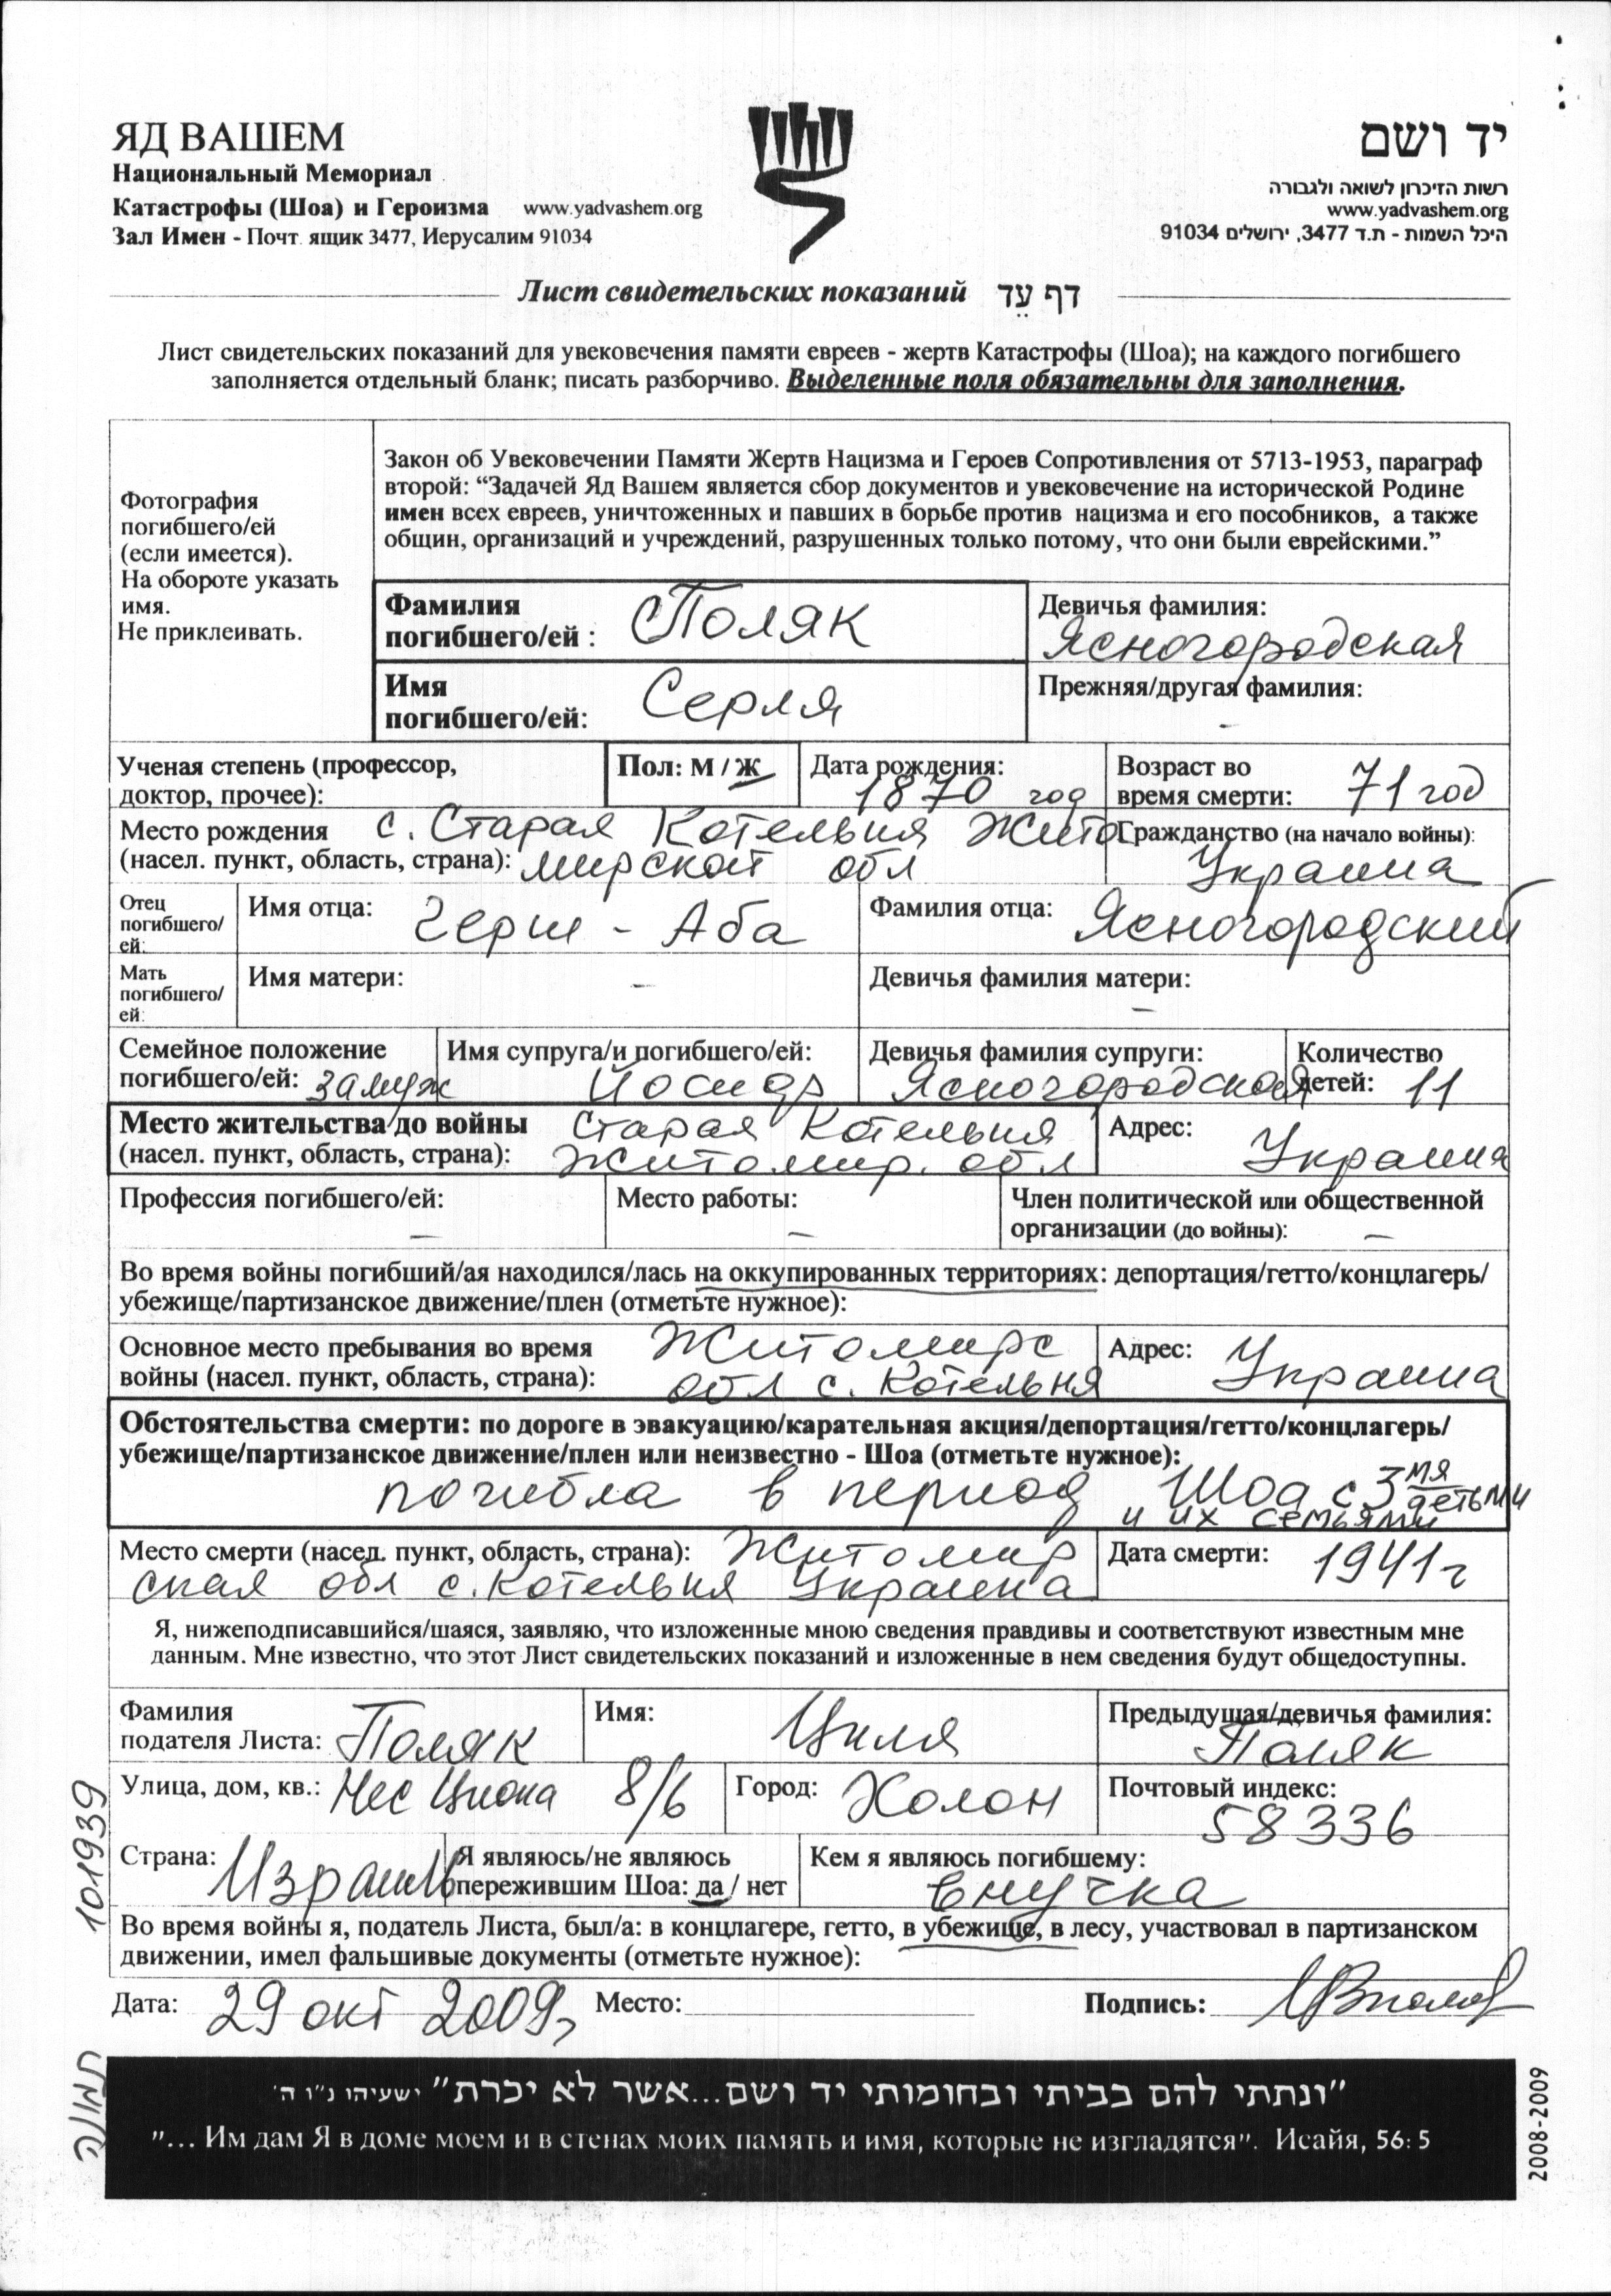 ЯД ВАШЕМ
Национальный Мемориал
Катастрофы (Шоа) и Героизма www.yadvashem.org
Зал Имен - Почт. ящик 3477, Иерусалим 91034
יד ושם
רשות הזיכרון לשואה ולגבורה
www.yadvashem.org
היכל השמות - ת.ד 3477, ירושלים 91034
Лист свидетельских показаний דף עֵד
Лист свидетельских показаний для увековечения памяти евреев - жертв Катастрофы (Шоа); на каждого погибшего
заполняется отдельный бланк; писать разборчиво. Выделенные поля обязательны для заполнения.
Фотография
погибшего/ей
(если имеется).
На обороте указать
имя.
Не приклеивать.
Закон об Увековечении Памяти Жертв Нацизма и Героев Сопротивления от 5713-1953, параграф
второй: “Задачей Яд Вашем является сбор документов и увековечение на исторической Родине
имен всех евреев, уничтоженных и павших в борьбе против нацизма и его пособников, а также
общин, организаций и учреждений, разрушенных только потому, что они были еврейскими.”
Фамилия
погибшего/ей : Поляк
Девичья фамилия:
Ясногородская
Имя
погибшего/ей: Серля
Прежняя/другая фамилия:
-
Ученая степень (профессор,
доктор, прочее):
Пол: М / Ж
Дата рождения:
1870 год
Возраст во
время смерти: 71 год
Место рождения с. Старая Котельня Жито
(насел. пункт, область, страна): мирской обл
Гражданство (на начало войны):
Украина
Отец
погибшего/
ей:
Имя отца: Герш - Аба
Фамилия отца: Ясногородский
Мать
погибшего/
ей:
Имя матери: -
Девичья фамилия матери:
-
Семейное положение
погибшего/ей: замуж
Имя супруга/и погибшего/ей:
Йосиф
Девичья фамилия супруги:
Ясногородская
Количество
детей: 11
Место жительства до войны Старая Котельня
(насел. пункт, область, страна): Житомир. обл
Адрес: Украина
Профессия погибшего/ей:
-
Место работы:
-
Член политической или общественной
организации (до войны): -
Во время войны погибший/ая находился/лась на оккупированных территориях: депортация/гетто/концлагерь/
убежище/партизанское движение/плен (отметьте нужное):
Основное место пребывания во время Житомирс
войны (насел. пункт, область, страна): обл с. Котельня
Адрес: Украина
Обстоятельства смерти: по дороге в эвакуацию/карательная акция/депортация/гетто/концлагерь/
убежище/партизанское движение/плен или неизвестно - Шоа (отметьте нужное):
погибла в период Шоа с 3мя детьми
и их семьями
Место смерти (насел. пункт, область, страна): Житомир
ская обл с. Котельня Украина
Дата смерти: 1941г
Я, нижеподписавшийся/шаяся, заявляю, что изложенные мною сведения правдивы и соответствуют известным мне
данным. Мне известно, что этот Лист свидетельских показаний и изложенные в нем сведения будут общедоступны.
Фамилия
подателя Листа: Поляк
Имя: Циля
Предыдущая/девичья фамилия:
Поляк
Улица, дом, кв.: Нес Циона 8/6
Город: Холон
Почтовый индекс:
58336
Страна: Израиль
Я являюсь/не являюсь
пережившим Шоа: да / нет
Кем я являюсь погибшему:
внучка
Во время войны я, податель Листа, был/а: в концлагере, гетто, в убежище, в лесу, участвовал в партизанском
движении, имел фальшивые документы (отметьте нужное):
Дата: 29 окт 2009г Место: Подпись:
101939
תמונה
"ונתתי להם בביתי ובחומותי יד ושם...אשר לא יכרת" ישעיהו נ"ו ה'
"... Им дам Я в доме моем и в стенах моих память и имя, которые не изгладятся". Исайя, 56: 5
2008-2009